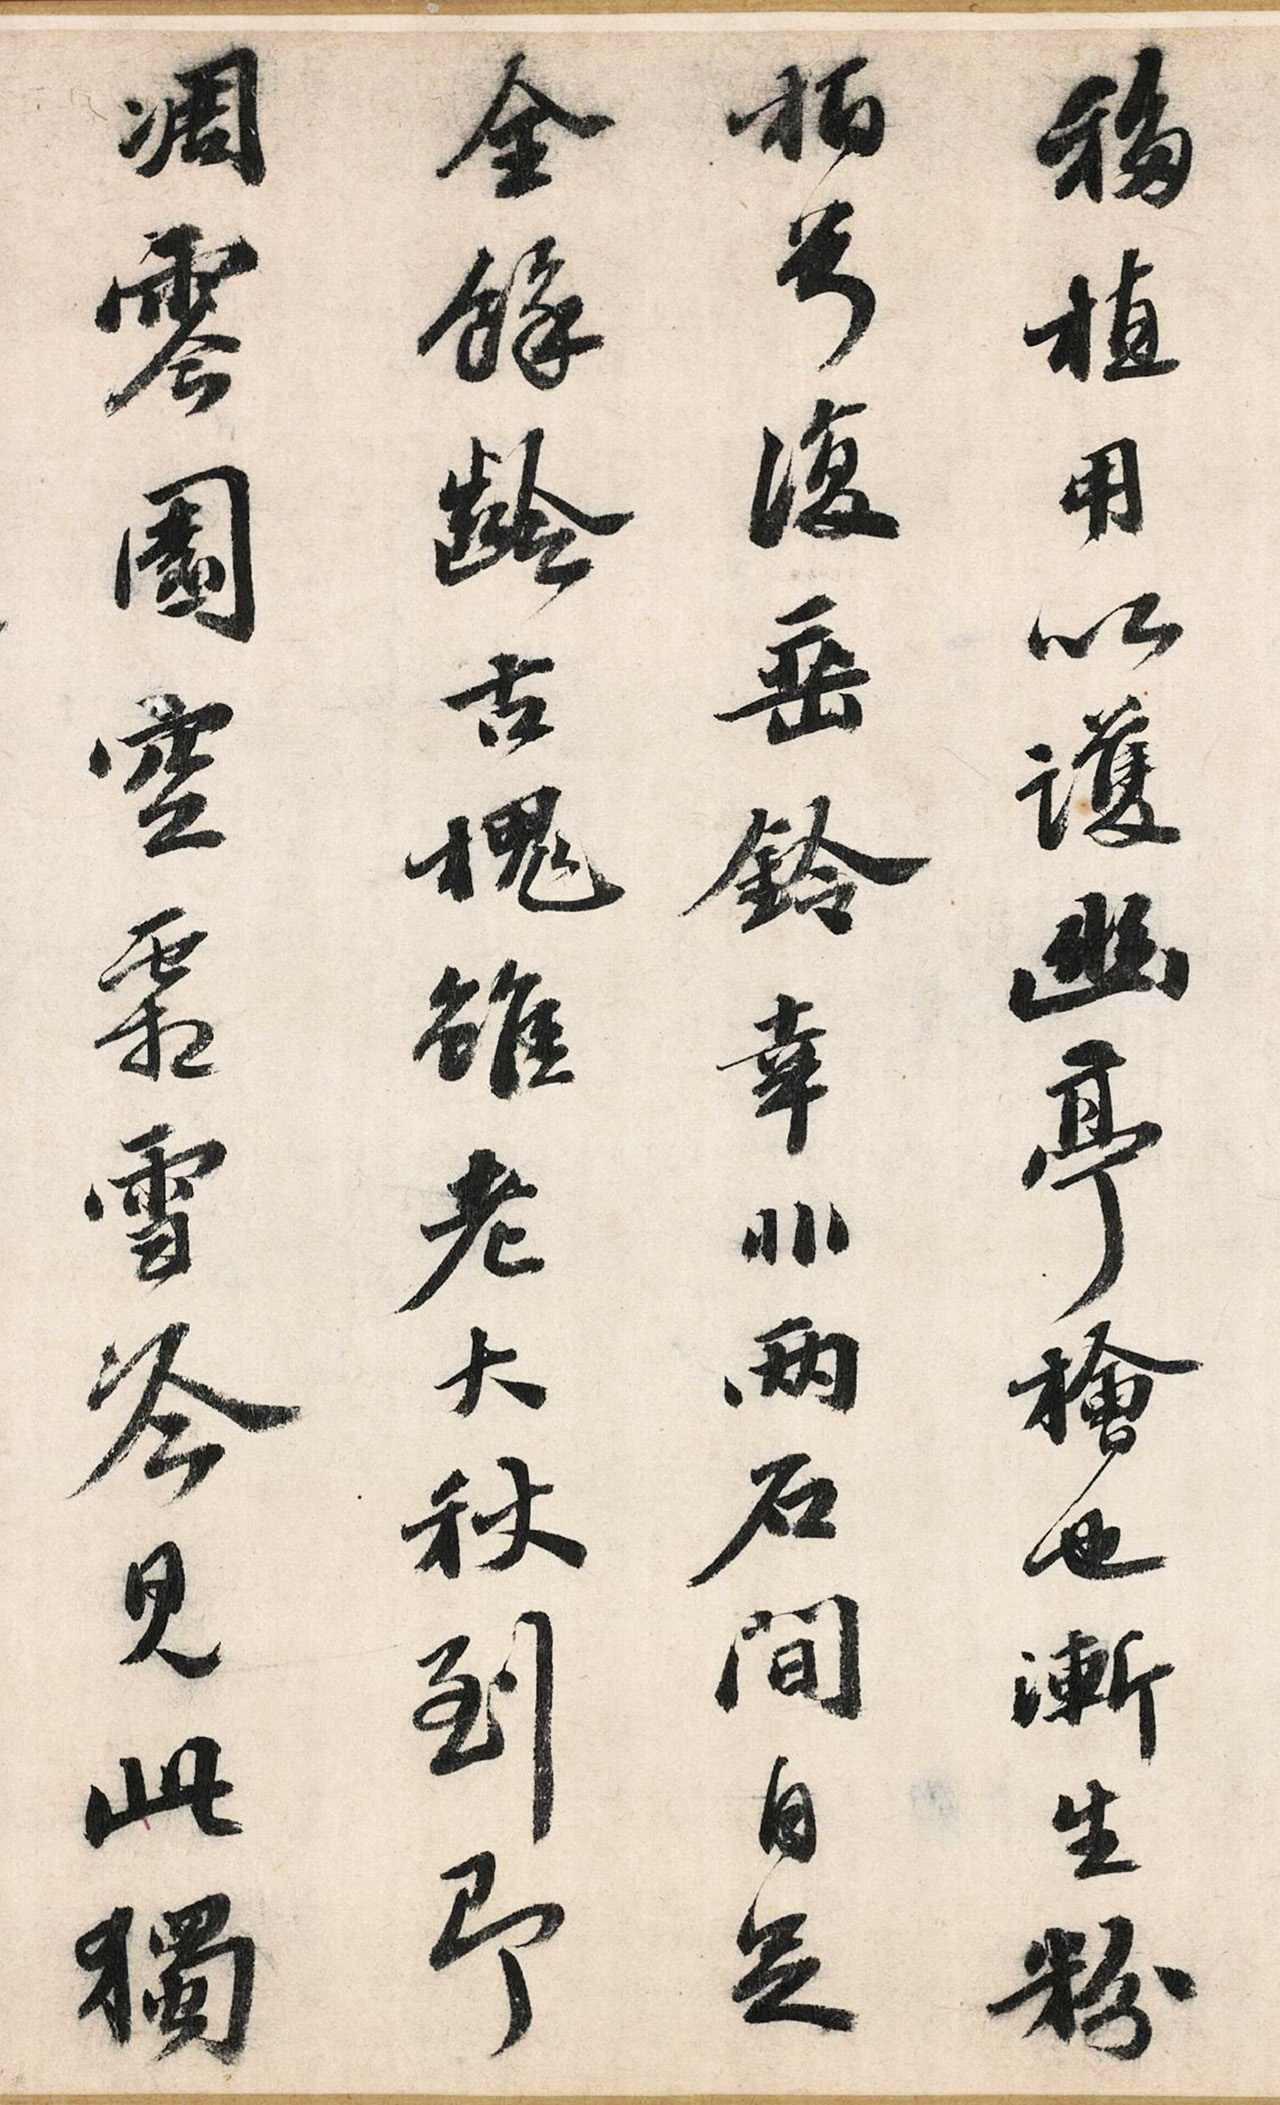 移植用以護幽亭檜也漸生粉
柏兮復垂鈴幸非兩石間自足
全餘齡古槐雖老大秋到即
凋零園空霜雪冷見此獨